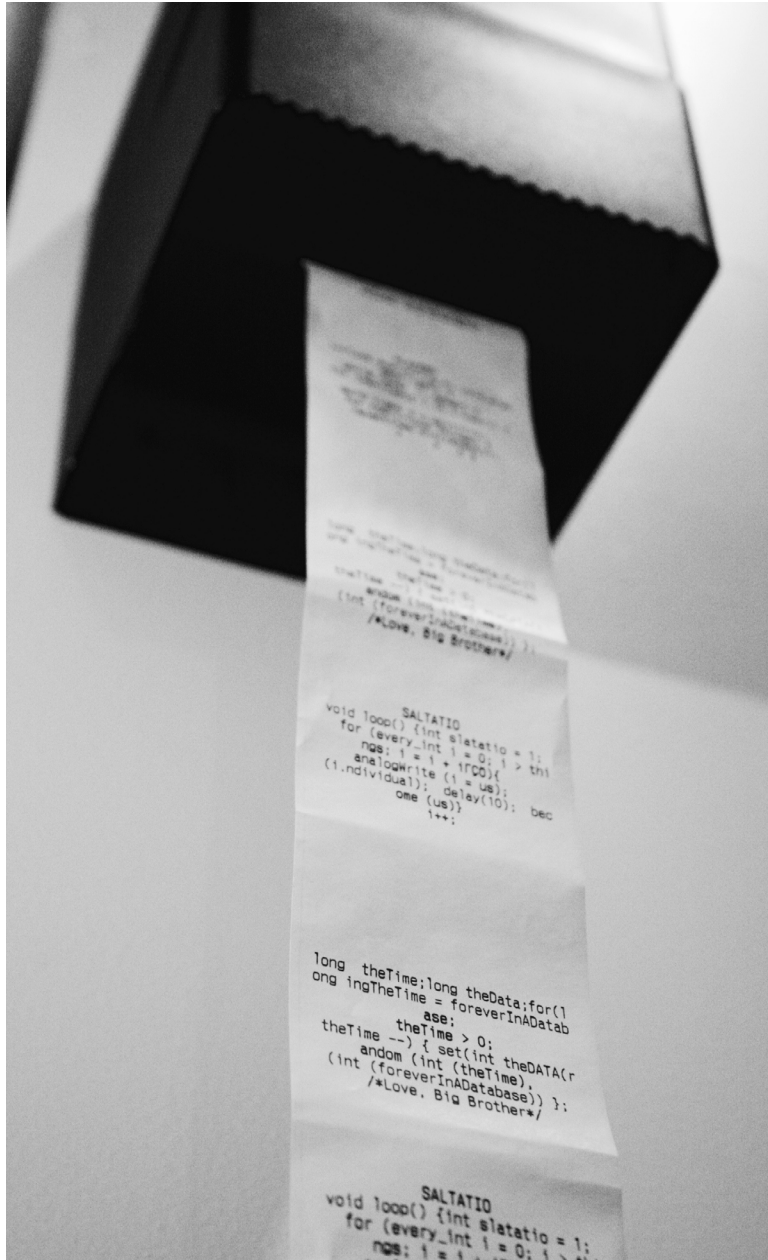 long theTime;long theData;for(l
ong ingTheTime = foreverInADatab
ase;
theTime > 0;
theTime --) { set(int
andom (int (theTime),
(int (foreverInADatabase)) };
/*Love, Big Brother*/
SALTATIO
void loop() {int slatatio = 1;
for (every_int i = 0; i > thi
ngs; i = i + i[C0){
analogWrite (i = us);
(i.ndividual); delay(10); bec
ome (us)}
i++;
long theTime;long theData;for(l
ong ingTheTime = foreverInADatab
ase;
theTime > 0;
theTime --) { set(int theDATA(r
andom (int (theTime),
(int (foreverInADatabase)) };
/*Love, Big Brother*/
SALTATIO
void loop() {int slatatio = 1;
for (every_int i = 0; i > thi
ngs; i = i +